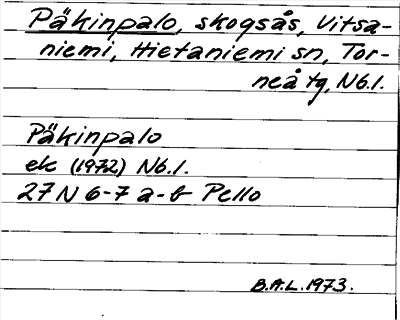 Päkinpalo, skogsås, Vitsa-
niemi, Hietaniemi sn, Tor-
neå tg, Nb.l.
Päkinpalo
ek (1972) Nb.l.
27 N 6-7 a-b Pello
B.A.L. 1973.